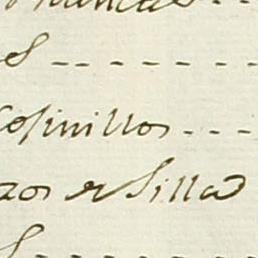 s - - - - -
cosinillos - - -
zos de Silla
s - - - - - -